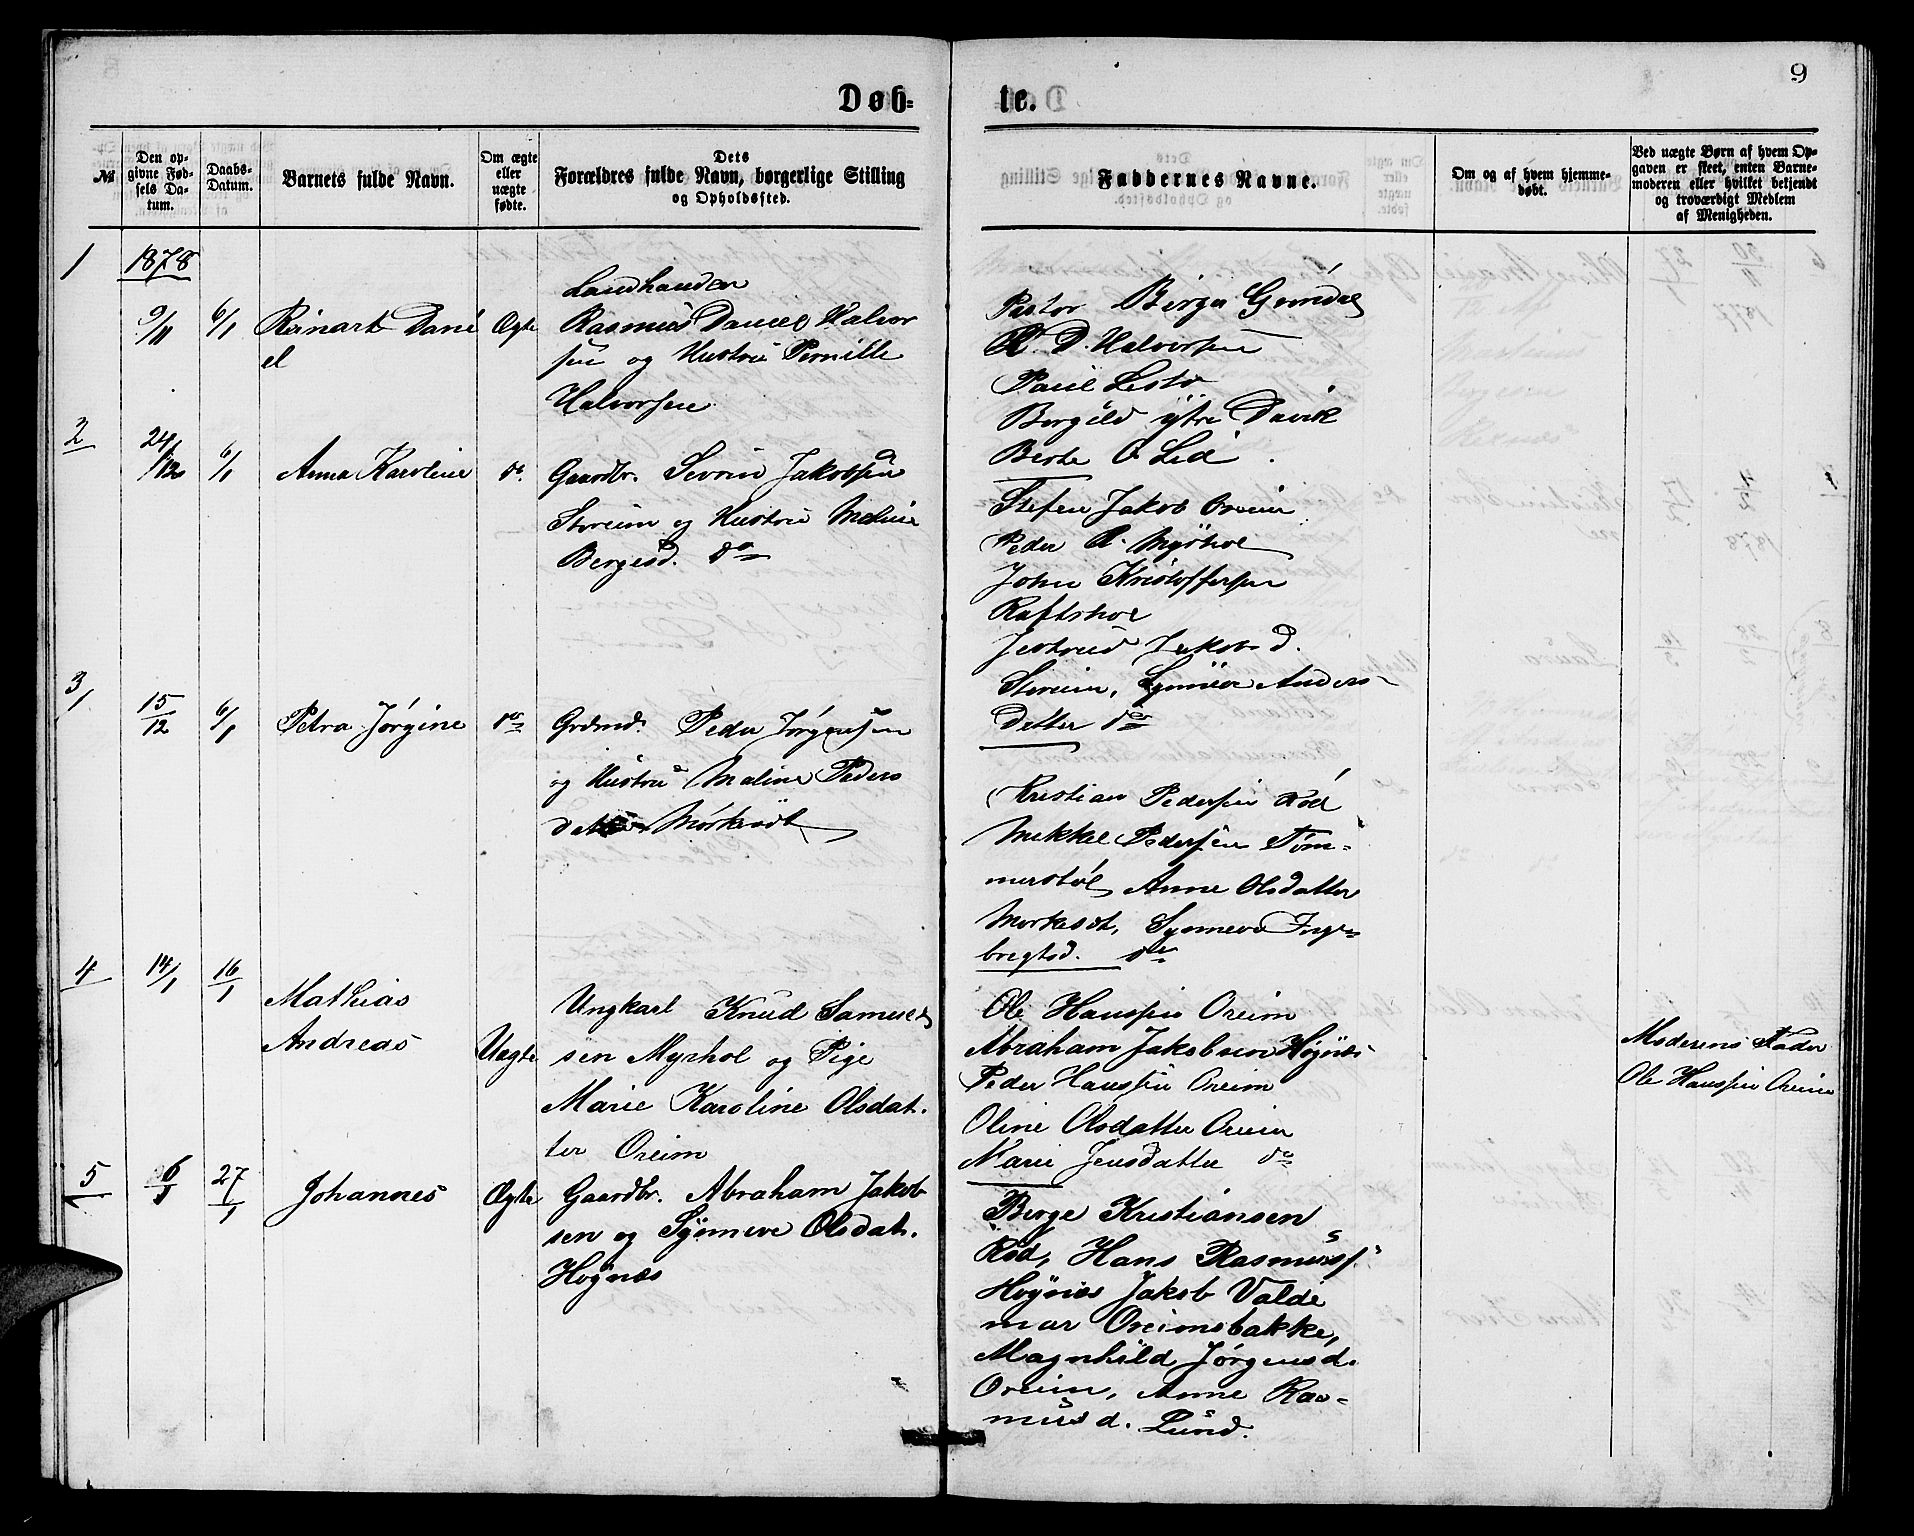 9
Døb=
te.
№
Den op-
givne Fød-
sels Da-
tum.
Daabs-
Datum.
Barnets fulde Navn.
Om ægte
eller
uægte
fødte.
Dets
Forældres fulde Navn, borgerlige Stilling
og Opholdssted.
Faddernes Navne.
Om og af hvem hjemme-
døbt.
Ved uægte Børn af hvem Op-
gaven er skeet, enten Barne-
moderen eller hvilket bekjendt
og troværdigt Medlem
af Menigheden.
1
1878
9/11
6/1
Reinart Dani
el
Ægte
Landhandler
Rasmus Daniel Halvor
sen og Hustru Pernille
Halvorsen
Pastor Birger
R. D. Halvorsen
Paul Leste
Borgild ytre Davik
Berte O Lid
2
24/12
6/1
Anna Karoline
do.
Gaardbr. Severin Jakobsen
Storeim og Hustru Maline
Bergesd. do
Stefen Jakob Oreim
Peder A. Myrhol
John Kristoffersen
Raftshol
Jertrud Jakobsd.
Storeim, Synneve Anders
Datter do
3
15/12
6/1
Petra Jørgine
do
Grdmd. Peder Jørgensen
og Hustru Maline Peders
datter Mørkesdt
Kristian Pedersen Rød
Mekkel Pedersen Tøm-
merstøl Anne Olsdatter
Mørkesdt, Synneve Inge-
bregtsd. do
4
14/1
16/1
Mathias
Andreas
Uægte
Ungkarl Knud Samuel
sen Myrhol og Pige
Marie Karoline Olsdat.
ter Oreim
Ole Hanssen Oreim
Abraham Jakobsen Høgnæs
Peder Hanssen Oreim
Oline Olsdatter Oreim
Marie Jensdatter do
Moderens Fader
Ole Hanssen Oreim
5
27/1
Johannes
Ægte
Gaardbr. Abraham Jakob
sen og Synneve Olsdat.
Høgnæs
Berge Kristiansen
Rød, Hans Rasmuss.
Høgnæs Jakob Valde
mar Oreimsbakke,
Magnhild Jørgensd.
Oreim, Anne Ras-
musd. Lund.